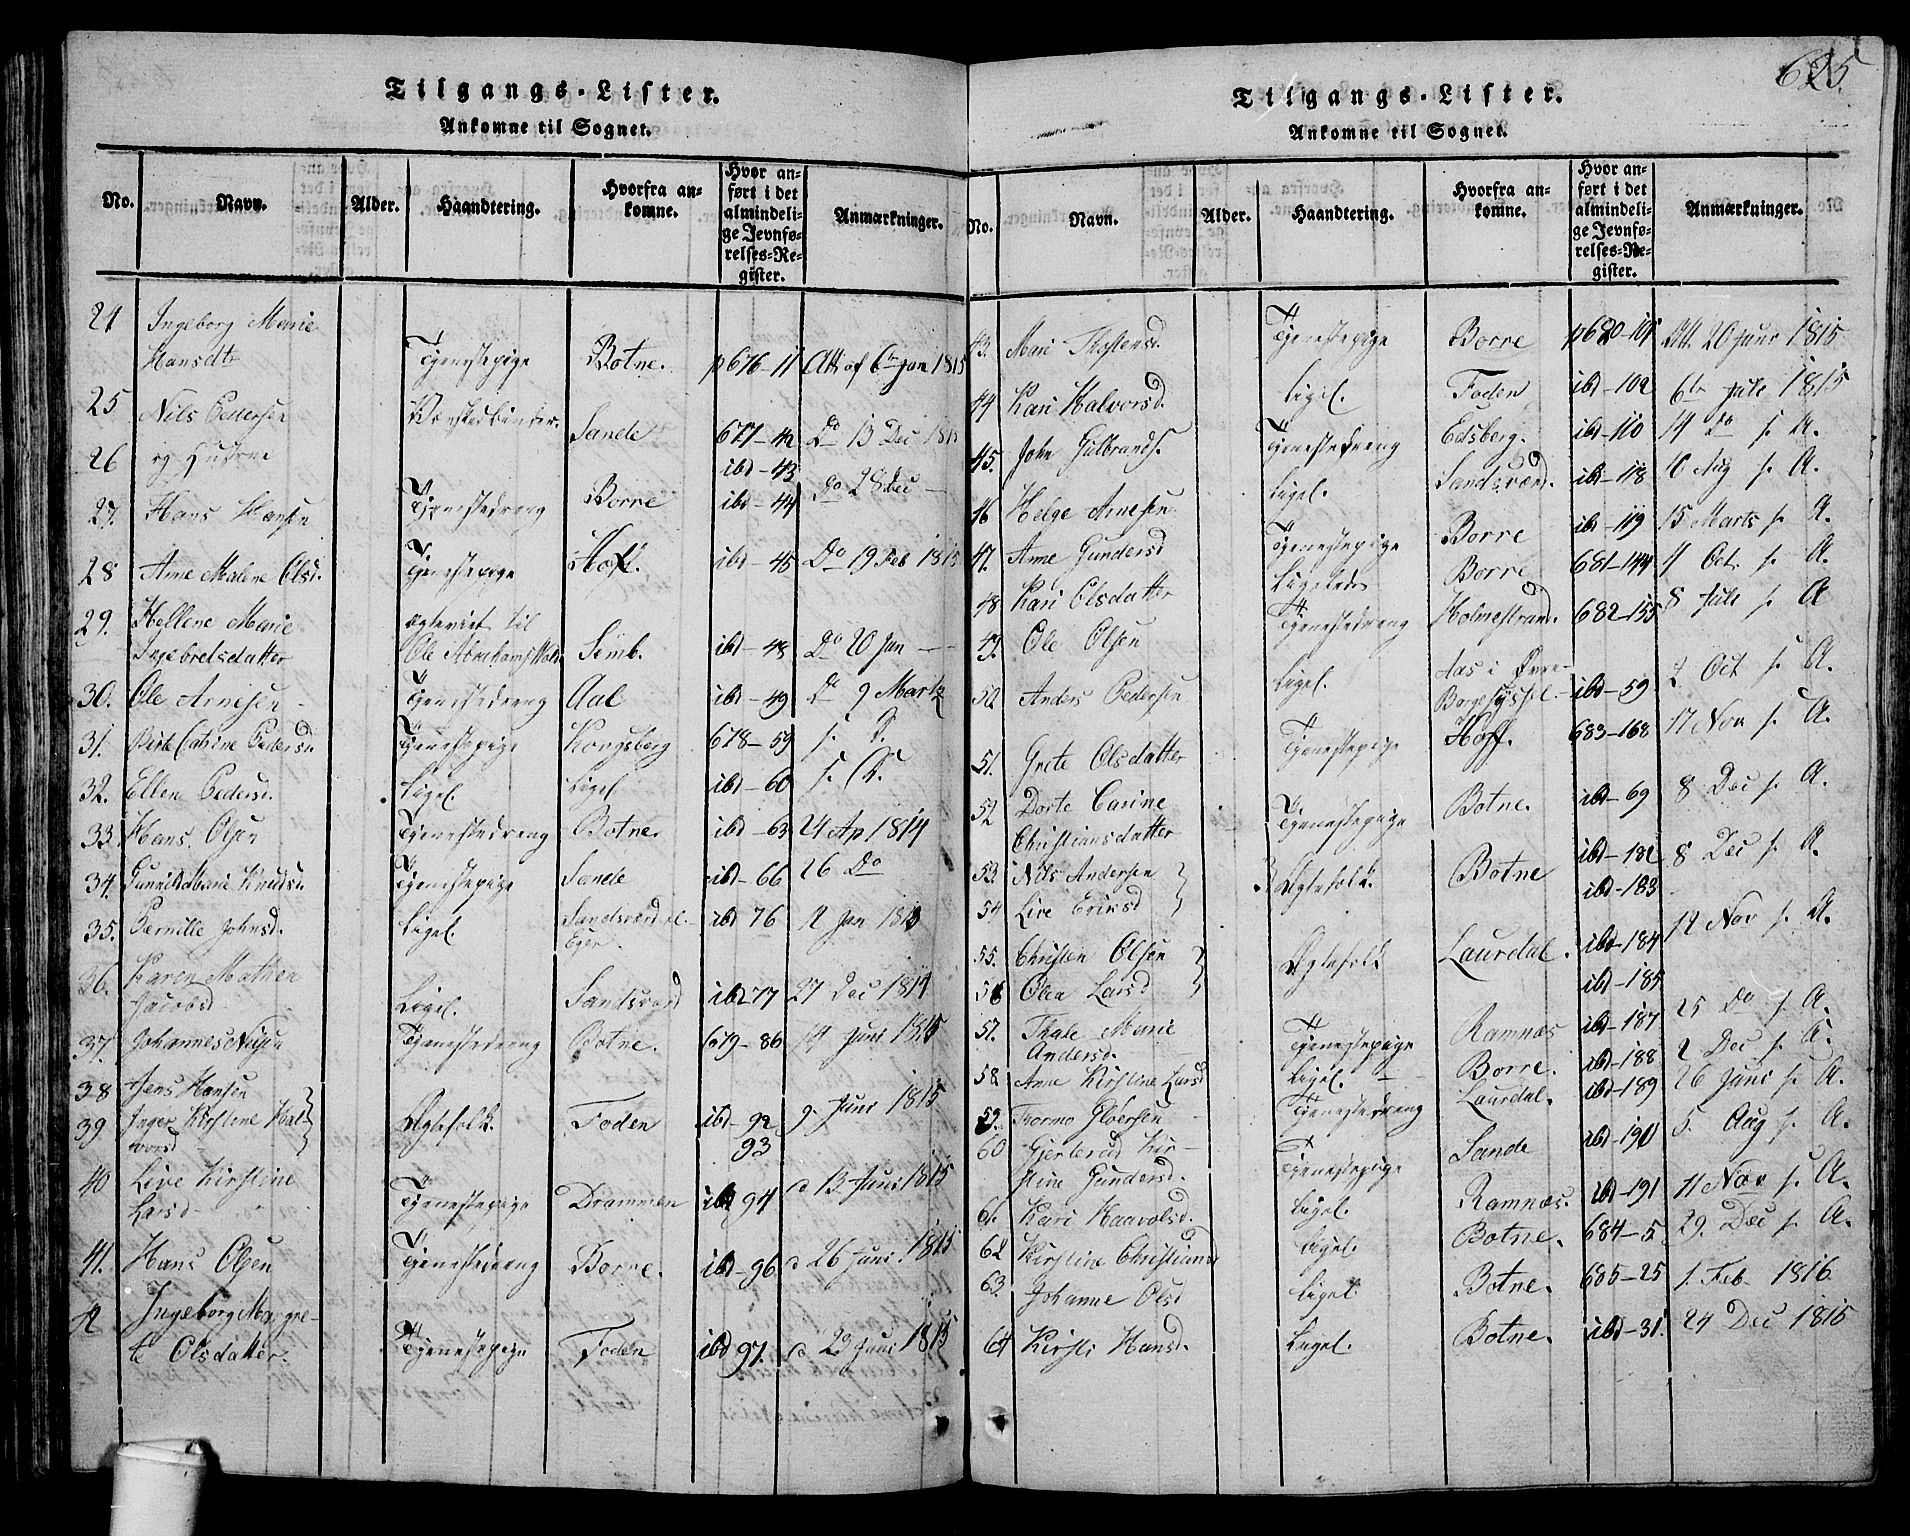 625.
Tilgangs-Lister.
Ankomne til Sognet.
No. Navn. Alder. Haandtering. Hvorfra ankomne. Hvor anført i det almindelige Jevnførelses-Register. Anmærkninger.
24 Ingeborg Marie
Hansdt Tjenestepige Botne. p 676-11 Att af 6te Jan 1815
25 Nils Pedersen Sande 677-42 Do 13 Dec 1815
26 og Hustrue ibd-43
27. Hans Hansen Tjenestedreng Borre ibd-44 Do 28 Dec —
28 Anne Malene Olsd. Tjenestepige Hoff. ibd-45 Do 19 Feb 1815
29. Hellene Marie ægteviet til
Ingebretsdatter Ole Abrahams Sømb. ibd-48 Do 20 Jan —
30. Ole Arnesen Tjenestedreng Aal ibd-49 Do 9 Marts
31. Birte Catrine Pedersd. Tjenestepige Kongsberg 678-59 s. D.
32. Ellen Pedersd. Ligel. Ligel ibd-60 s. A.
33. Hans Olsen Tjenestedreng Botne. ibd-63 24 Ap 1814
34. Gunnild Marie Knudsd. Tjenestepige Sande ibd-66 26 Do
35. Pernille Johnsd. Ligel. Sandsværd el.
Eger. ibd 76 12 Jan 1813
36. Karen Mathea
Jacobsd Ligel. Sandsværd ibd 77 27 Dec 1814
37. Johannes Nilsen Tjenestedreng Botne. 679-86 14 Juni 1815
38 Jens Hansen
39 Inger Kirstine Hal-
vorsd Ægtefolk. Foden ibd-92 9 Juni 1815
93
40 Live Kirstine
Larsd Tjenestepige Drammen ibd 94 d 13 Juni 1815
41. Hans Olsen Tjenestedreng Borre. ibd-96 d 26 Juni 1815
42 Ingeborg Margre-
te Olsdatter. Tjenestepige Foden ibd 97. d 23 Juni 1815
Tilgangs-Lister.
Ankomne til Sognet.
No. Navn. Alder. Haandtering. Hvorfra ankomne. Hvor anført i det almindelige Jevnførelses-Register. Anmærkninger.
43. Mari Thostensd. Tjenestepige Borre p 680-101 Att. 20 Juni 1815
44 Kari Halvorsd. Ligel. Foden ibd-102 6te Juli 1815
45. John Gulbrands. Tjenestedreng Edsberg. ibd-110 14 Do s. A.
46 Helge Arnesen Ligel. Sandsværd. ibd-118 10 Aug s. A.
47. Anne Gundersd Tjenestepige Borre ibd-119 15 Marts s. A.
48 Kari Olsdatter Ligeledes Borre 681-144 11 Oct. s. A.
49. Ole Olsen Tjenestedreng Holmestrand. 682-155 8 Juli s. A
50. Anders Pedersen Ligel. Aas i Øvre
Borgesyssel ibd-59 2 Oct s. A.
51. Grete Olsdatter Tjenestepige Hoff. 683-168 17 Nov s. A.
52 Dorte Carine
Christiansdatter Tjenestepige Botne. ibd-69 8 Dec s. A.
53. Nils Andersen Ægtefolk. Botne ibd-182 8 Dec s. A.
54 Live Eriksd ibd-183
55. Christen Olsen Ægtefolk Laurdal. ibd-184 12 Nov s. A.
56 Olea Larsd ibd-185
57. Thale Marie
Andersd. Tjenestepige Ramnæs ibd-187 25 Do s. A.
58. Anne Kirstine Larsd Ligel. Borre. ibd-188 2 Dec s. A.
59. Tjenestedreng Laurdal. ibd-189 26 Juni s. A.
60 Gjertrud Kir-
stine Gundersd. Tjenestepige Sande ibd-190 5. Aug s. A.
61. Kari Haavolsd. Ligel. Ramnæs. ibd-191 11 Nov s. A.
62 Kirstine Christians Ligel. Botne. 684-5 29. Dec s. A.
63. Johanne Olsd Ligel. Botne. 685-25 1. Feb 1816
64 Kirsti Hansd. Ligel. Botne. ibd-31. 24 Dec 1815